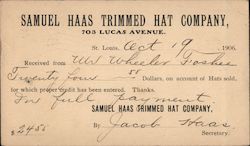 SAMUEL HAAS TRIMMED HAT COMPANY,
703 LUCAS AVENUE.
St. Louis, Oct 19 1906.
Received from Mr Wheeler Foshee
Twenty four 50 Dollars, on account of Hats sold,
for which proper credit has been entered. Thanks.
For full payment
SAMUEL HAAS TRIMMED HAT COMPANY,
$2450 By Jacob Haas
Secretary.